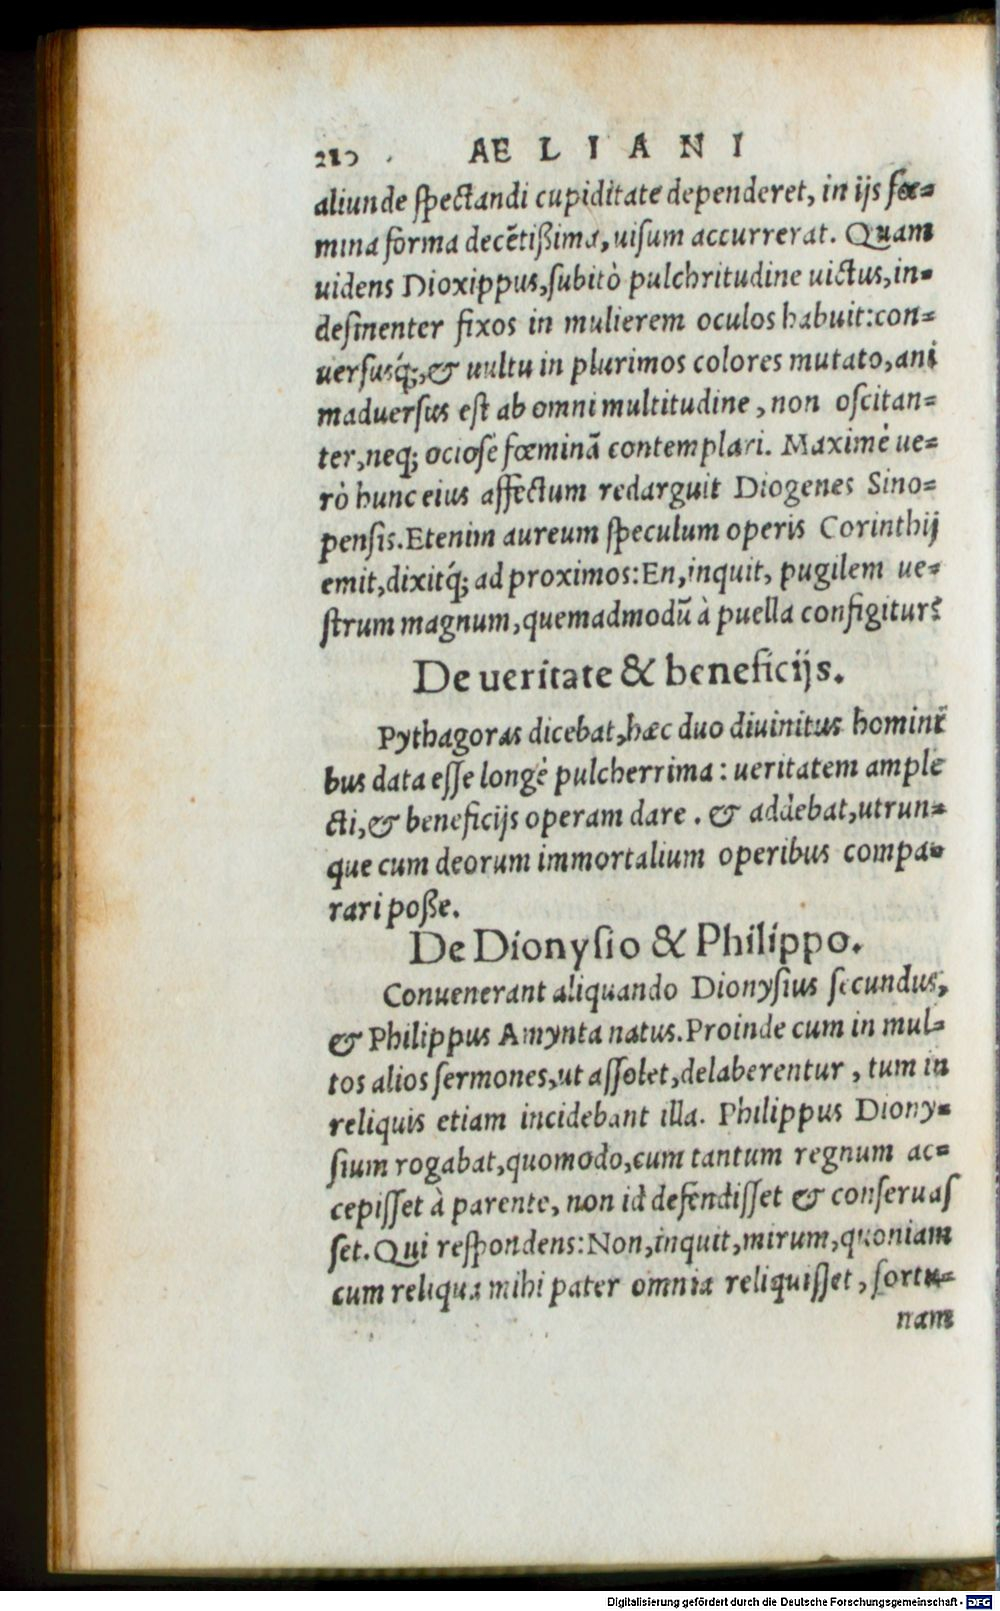 210 AELIANI
aliunde spectandi cupiditate dependeret, in ijs fœ-
mina forma decẽtißima, uisum accurrerat. Quam
uidens Dioxippus, subitò pulchritudine uictus, in-
desinenter fixos in mulierem oculos habuit: con-
uersusq́;, & uultu in plurimos colores mutato, ani
maduersus est ab omni multitudine, non oscitan-
ter, neq; ociosè fœminã contemplari. Maximè ue-
rò hunc eius affectum redarguit Diogenes Sino-
pensis. Etenim aureum speculum operis Corinthij
emit, dixitq́; ad proximos: En, inquit, pugilem ue-
strum magnum, quemadmodũ à puella configitur?
De ueritate & beneficijs.
Pythagoras dicebat, hæc duo diuinitus homini
bus data esse longè pulcherrima: ueritatem ample
cti, & beneficijs operam dare. & addebat, utrun-
que cum deorum immortalium operibus compa-
rari poße.
De Dionysio & Philippo.
Conuenerant aliquando Dionysius secundus,
& Philippus Amynta natus. Proinde cum in mul-
tos alios sermones, ut assolet, delaberentur, tum in
reliquis etiam incidebant illa. Philippus Diony-
sium rogabat, quomodo, cum tantum regnum ac-
cepisset à parente, non id defendisset & conseruas
set. Qui respondens: Non, inquit, mirum, quoniam
cum reliqua mihi pater omnia reliquisset, fortu-
nam
Digitalisierung gefördert durch die Deutsche Forschungsgemeinschaft - DFG